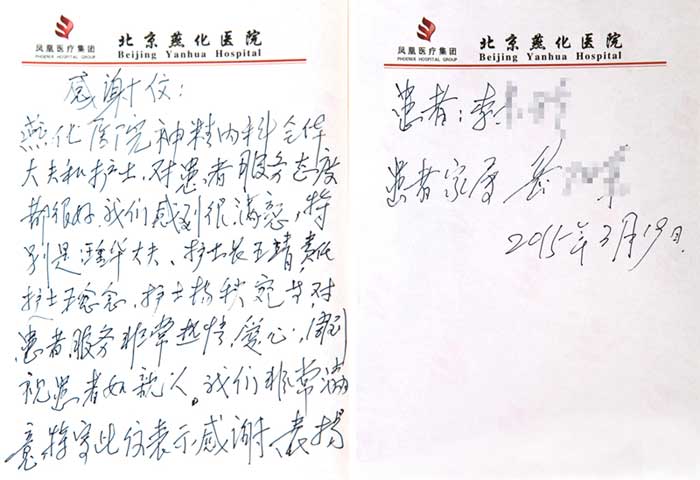 凤凰医疗集团
PHOENIX HOSPITAL GROUP
北京燕化医院
Beijing Yanhua Hospital
感谢信:
燕化医院神精内科全体
大夫和护士,对患者服务态度
都很好,我们感到很满意,特
别是 华大夫、护士长王靖,责任
护士王 ,护士杨秋 等对
患者服务非常热情,爱心,
视患者如亲人。我们非常满
意,特写此信表示感谢、表扬
凤凰医疗集团
PHOENIX HOSPITAL GROUP
北京燕化医院
Beijing Yanhua Hospital
患者:李
患者家属
2015年3月19日.